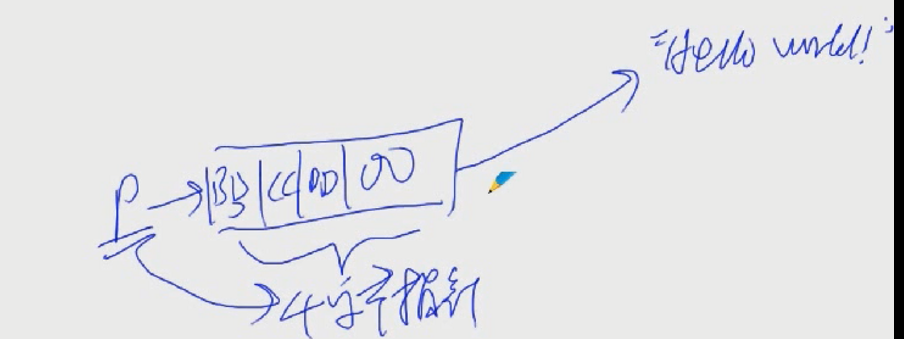 "Hello world!"
P → BB CC DD 00
4字节指针